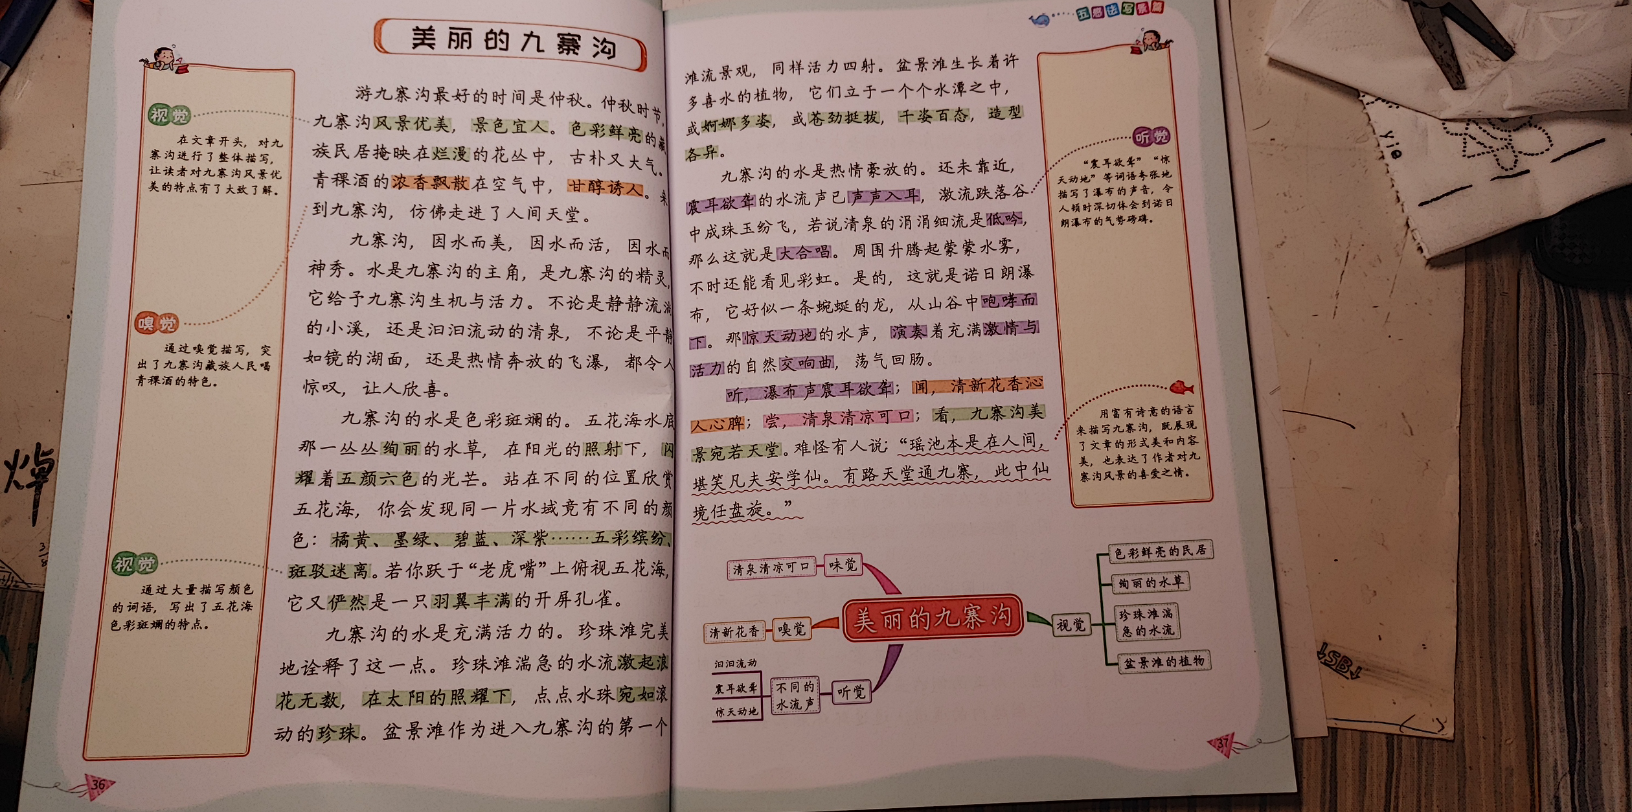 美丽的九寨沟
视觉
在文章开头，对九
寨沟进行了整体描写，
让读者对九寨沟风景优
美的特点有了大致了解。
嗅觉
通过嗅觉描写，突
出了九寨沟藏族人民喝
青稞酒的特色。
视觉
通过大量描写颜色
的词语，写出了五花海
色彩斑斓的特点。
游九寨沟最好的时间是仲秋。仲秋时节，
九寨沟风景优美，景色宜人。色彩鲜亮的藏
族民居掩映在烂漫的花丛中，古朴又大气。
青稞酒的浓香飘散在空气中，甘醇诱人。来
到九寨沟，仿佛走进了人间天堂。
九寨沟，因水而美，因水而活，因水而
神秀。水是九寨沟的主角，是九寨沟的精灵，
它给予九寨沟生机与活力。不论是静静流淌
的小溪，还是汩汩流动的清泉，不论是平静
如镜的湖面，还是热情奔放的飞瀑，都令人
惊叹，让人欣喜。
九寨沟的水是色彩斑斓的。五花海水底
那一丛丛绚丽的水草，在阳光的照射下，闪
耀着五颜六色的光芒。站在不同的位置欣赏
五花海，你会发现同一片水域竟有不同的颜
色：橘黄、墨绿、碧蓝、深紫……五彩缤纷、
斑驳迷离。若你跃于“老虎嘴”上俯视五花海，
它又俨然是一只羽翼丰满的开屏孔雀。
九寨沟的水是充满活力的。珍珠滩完美
地诠释了这一点。珍珠滩湍急的水流激起浪
花无数，在太阳的照耀下，点点水珠宛如滚
动的珍珠。盆景滩作为进入九寨沟的第一个
36
五感法写景篇
滩流景观，同样活力四射。盆景滩生长着许
多喜水的植物，它们立于一个个水潭之中，
或婀娜多姿，或苍劲挺拔，千姿百态，造型
各异。
九寨沟的水是热情豪放的。还未靠近，
震耳欲聋的水流声已声声入耳，激流跌落谷
中成珠玉纷飞，若说清泉的涓涓细流是低吟，
那么这就是大合唱。周围升腾起蒙蒙水雾，
不时还能看见彩虹。是的，这就是诺日朗瀑
布，它好似一条蜿蜒的龙，从山谷中咆哮而
下。那惊天动地的水声，演奏着充满激情与
活力的自然交响曲，荡气回肠。
听，瀑布声震耳欲聋；闻，清新花香沁
人心脾；尝，清泉清凉可口；看，九寨沟美
景宛若天堂。难怪有人说：“瑶池本是在人间，
堪笑凡夫安学仙。有路天堂通九寨，此中仙
境任盘旋。”
听觉
“震耳欲聋”“惊
天动地”等词语夸张地
描写了瀑布的声音，令
人顿时深切体会到诺日
朗瀑布的气势磅礴。
用富有诗意的语言
来描写九寨沟，既展现
了文章的形式美和内容
美，也表达了作者对九
寨沟风景的喜爱之情。
清泉清凉可口 味觉
清新花香 嗅觉
汩汩流动
震耳欲聋
惊天动地
不同的
水流声
听觉
美丽的九寨沟
视觉
色彩鲜亮的民居
绚丽的水草
珍珠滩湍
急的水流
盆景滩的植物
37
焯
Yia
↓SB↓